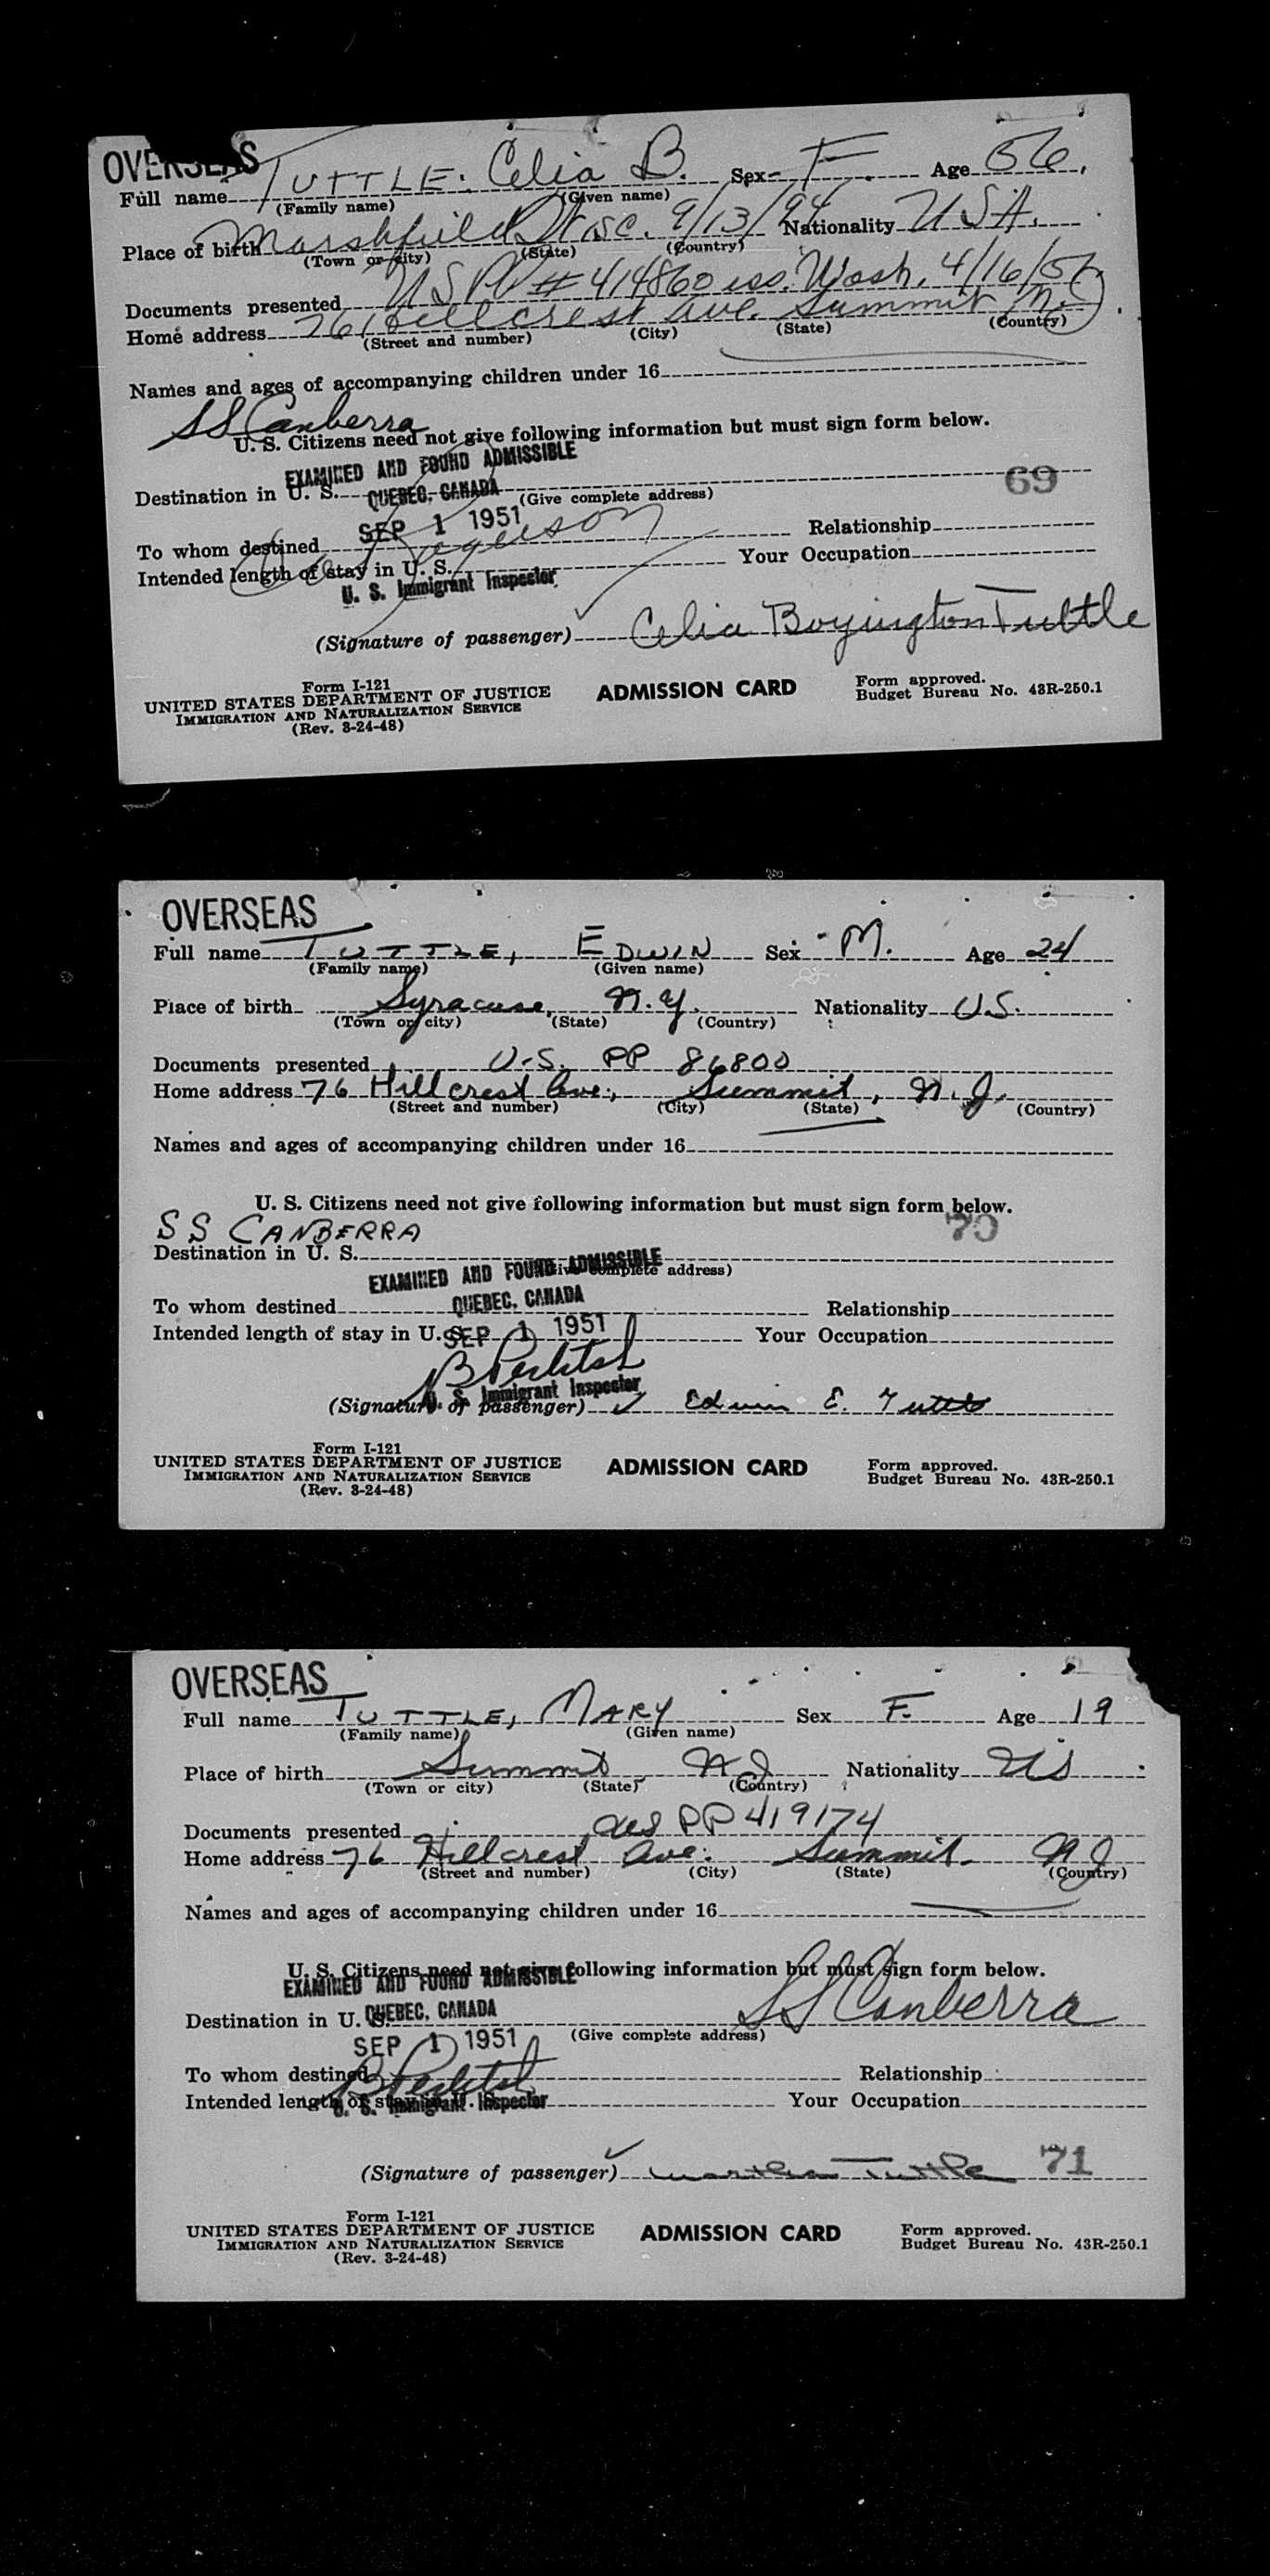 OVERSEAS
Full name TUTTLE. Celia B. Sex F. Age 56.
(Family name) (Given name)
Place of birth Marshfield Wisc. 9/13/94 Nationality USA.
(Town or city) (State) (Country)
Documents presented USPP # 414860 iss. Wash. 4/16/51
Home address 76 Hillcrest ave. Summit N.J.
(Street and number) (City) (State) (Country)
Names and ages of accompanying children under 16
SS Canberra
U. S. Citizens need not give following information but must sign form below.
EXAMINED AND FOUND ADMISSIBLE
Destination in U. S. 69
QUEBEC, CANADA (Give complete address)
SEP 1 1951
To whom destined Relationship
Intended length of stay in U. S. Your Occupation
U. S. Immigrant Inspector
(Signature of passenger) Celia Boyington Tuttle
Form I-121
UNITED STATES DEPARTMENT OF JUSTICE
IMMIGRATION AND NATURALIZATION SERVICE
(Rev. 3-24-48)
ADMISSION CARD
Form approved.
Budget Bureau No. 43R-250.1
OVERSEAS
Full name TUTTLE, EDWIN Sex M. Age 24
(Family name) (Given name)
Place of birth Syracuse, N.Y. Nationality U.S.
(Town or city) (State) (Country)
Documents presented U.S. PP 86800
Home address 76 Hillcrest Ave, Summit, N.J.
(Street and number) (City) (State) (Country)
Names and ages of accompanying children under 16
U. S. Citizens need not give following information but must sign form below.
SS CANBERRA 70
Destination in U. S.
EXAMINED AND FOUND ADMISSIBLE
(Give complete address)
QUEBEC, CANADA
To whom destined Relationship
SEP 1 1951
Intended length of stay in U. S. Your Occupation
U. S. Immigrant Inspector
(Signature of passenger) Edwin E. Tuttle
Form I-121
UNITED STATES DEPARTMENT OF JUSTICE
IMMIGRATION AND NATURALIZATION SERVICE
(Rev. 3-24-48)
ADMISSION CARD
Form approved.
Budget Bureau No. 43R-250.1
OVERSEAS
Full name TUTTLE, MARY Sex F. Age 19
(Family name) (Given name)
Place of birth Summit NJ Nationality US
(Town or city) (State) (Country)
Documents presented US PP 419174
Home address 76 Hillcrest Ave. Summit. NJ
(Street and number) (City) (State) (Country)
Names and ages of accompanying children under 16
U. S. Citizens need not give following information but must sign form below.
EXAMINED AND FOUND ADMISSIBLE
SS Canberra
Destination in U. S.
QUEBEC, CANADA
SEP 1 1951 (Give complete address)
To whom destined Relationship
Intended length of stay in U. S. Your Occupation
U. S. Immigrant Inspector
(Signature of passenger) Tuttle 71
Form I-121
UNITED STATES DEPARTMENT OF JUSTICE
IMMIGRATION AND NATURALIZATION SERVICE
(Rev. 3-24-48)
ADMISSION CARD
Form approved.
Budget Bureau No. 43R-250.1